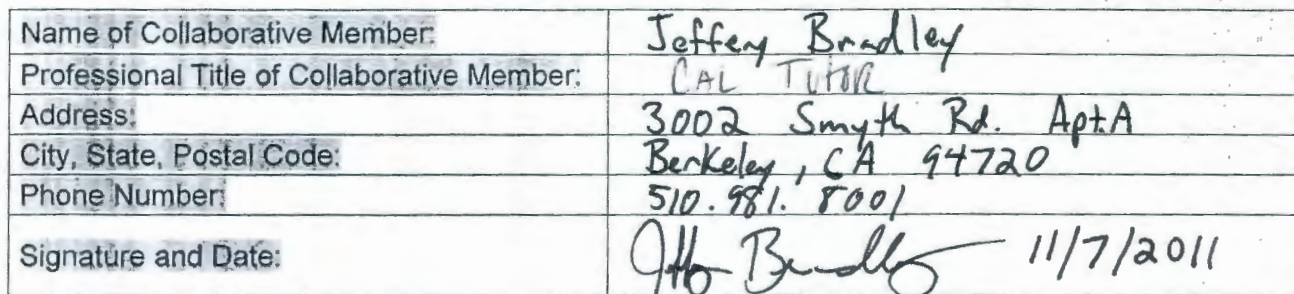 Name of Collaborative Member: Jeffery Bradley
Professional Title of Collaborative Member: CAL TUTOR
Address: 3002 Smyth Rd. Apt.A
City, State, Postal Code: Berkeley, CA 94720
Phone Number: 510.981.8001
Signature and Date: Jeffery Bradley 11/7/2011